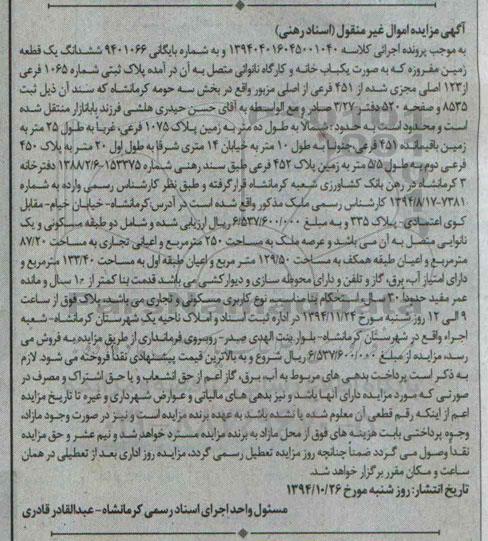 آگهی مزایده اموال غیر منقول (اسناد رهنی)
به موجب پرونده اجرائی کلاسه ۱۳۹۴۰۴۰۱۶۰۴۵۰۰۱۰۴۰ و به شماره بایگانی ۹۴۰۱۰۶۶ ششدانگ یک قطعه
زمین مفروزه که به صورت یکباب خانه و کارگاه نانوائی متصل به آن در آمده پلاک ثبتی شماره ۱۰۶۵ فرعی
از ۱۲۳ اصلی مجزی شده از ۴۵۱ فرعی از اصلی مزبور واقع در بخش سه حومه کرمانشاه که سند آن ذیل ثبت
۸۵۳۵ و صفحه ۵۲۰ دفتر ۳/۲۷ صادر و مع الواسطه به آقای حسن حیدری هلشی فرزند بابانازار منتقل شده
است و محدود است به حدود: شمالا به طول ده متر به زمین پلاک ۱۰۷۵ فرعی، غربا به طول ۲۵ متر به
زمین باقیمانده ۴۵۱ فرعی جنوبا به طول ۱۰ متر به خیابان ۱۴ متری شرقا به طول اول ۲۰ متر به پلاک ۴۵۰
فرعی دوم به طول ۵/۵ متر به زمین پلاک ۴۵۲ فرعی طبق سند رهنی شماره ۱۵۳۳۷۵-۱۳۸۸/۲/۶ دفترخانه
۳ کرمانشاه در رهن بانک کشاورزی شعبه کرمانشاه قرار گرفته و طبق نظر کارشناس رسمی وارده به شماره
۷۳۸۱-۱۳۹۴/۸/۱۷ کارشناس رسمی ملک مذکور واقع شده است در آدرس: کرمانشاه- خیابان خیام- مقابل
کوی اعتمادی- پلاک ۳۳۵ و به مبلغ ۶/۵۳۷/۶۰۰/۰۰۰ ریال ارزیابی شده و شامل دو طبقه مسکونی و یک
نانوایی متصل به آن می باشد و عرصه ملک به مساحت ۲۵۰ مترمربع و اعیانی تجاری به مساحت ۸۷/۲۰
مترمربع و اعیان طبقه همکف به مساحت ۱۲۹/۵۰ متر مربع و اعیان طبقه اول به مساحت ۱۳۳/۴۰ مترمربع و
دارای امتیاز آب، برق، گاز و تلفن و دارای محوطه سازی و دیوار کشی می باشد قدمت بنا کمتر از ۱۰ سال و مانده
عمر مفید حدودا ۳۰ سال، استحکام بنا مناسب، نوع کاربری مسکونی و تجاری می باشد، پلاک فوق از ساعت
۹ الی ۱۲ روز شنبه مورخ ۱۳۹۴/۱۱/۲۴ در اداره ثبت اسناد و املاک ناحیه یک شهرستان کرمانشاه- شعبه
اجراء واقع در شهرستان کرمانشاه- بلوار بنت الهدی صدر- روبروی فرمانداری از طریق مزایده به فروش می
رسد، مزایده از مبلغ ۶/۵۳۷/۶۰۰/۰۰۰ ریال شروع و به بالاترین قیمت پیشنهادی نقدا فروخته می شود. لازم
به ذکر است پرداخت بدهی های مربوط به آب، برق، گاز اعم از حق انشعاب و یا حق اشتراک و مصرف در
صورتی که مورد مزایده دارای آنها باشد و نیز بدهی های مالیاتی و عوارض شهرداری و غیره تا تاریخ مزایده
اعم از اینکه رقم قطعی آن معلوم شده یا نشده باشد به عهده برنده مزایده است و نیز در صورت وجود مازاد،
وجوه پرداختی بابت هزینه های فوق از محل مازاد به برنده مزایده مسترد خواهد شد و نیم عشر و حق مزایده
نقدا وصول می گردد ضمنا چنانچه روز مزایده تعطیل رسمی گردد، مزایده روز اداری بعد از تعطیلی در همان
ساعت و مکان مقرر برگزار خواهد شد.
تاریخ انتشار: روز شنبه مورخ ۱۳۹۴/۱۰/۲۶
مسئول واحد اجرای اسناد رسمی کرمانشاه- عبدالقادر قادری